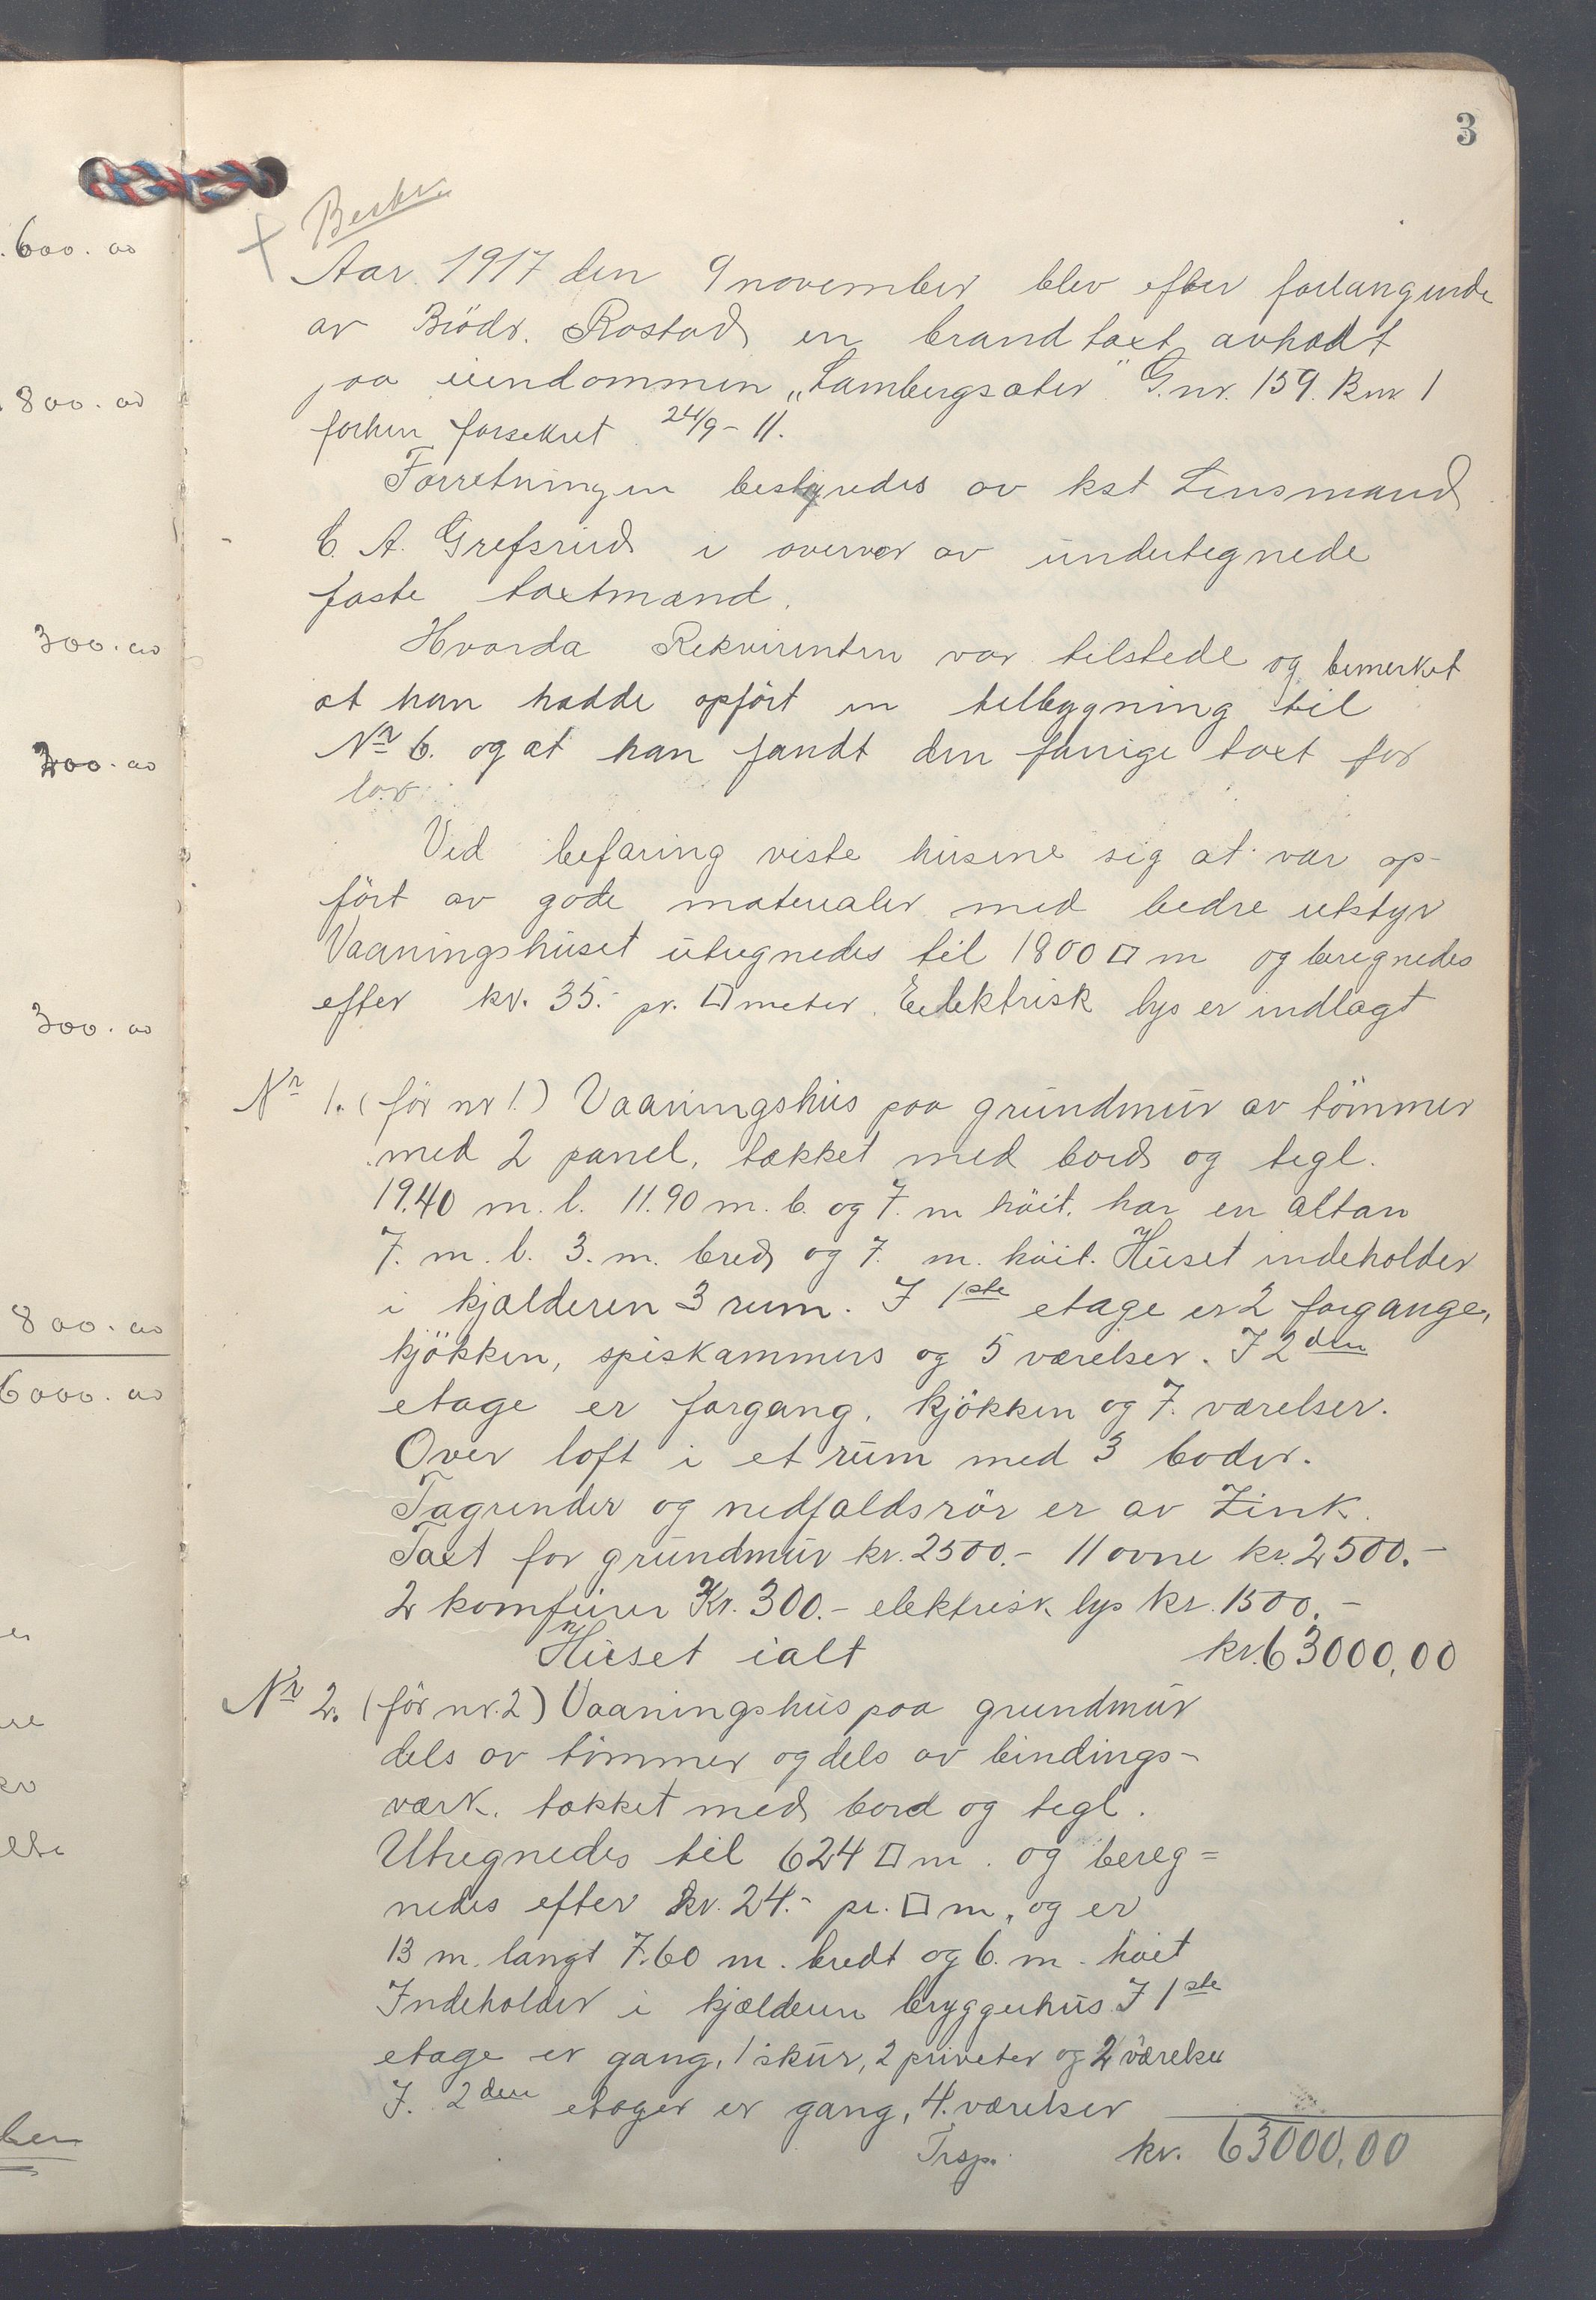 3
Beskr
Aar 1917 den 9 november blev efter forlangende
av Brödr. Rostad en brandtaxt avholdt
paa eiendommen „Lambergsæter" G.nr. 159. Bnr 1
forhen forsekret 24/9-11.
Forretningen bestyredes av kst Lensmand
C. A. Grefsrud i overvær av undertegnede
faste taxtmænd.
Hvorda Rekvirenten var tilstede og bemerket
at han hadde opfört en tilbygning til
Nr 6. og at han fandt den forrige taxt for
lav
Ved befaring viste husene sig at vær op-
fört av gode materialer med bedre utstyr
Vaaningshuset utregnedes til 1800 □ m og beregnedes
efter kr. 35.- pr. □ meter. Eelektrisk lys er indlagt
Nr 1. (för nr 1.) Vaaningshus paa grundmur av tömmer
med 2 panel, tækket med bord og tegl.
19.40 m. l. 11.90 m. b. og 7. m höit. har en altan
7. m. l. 3. m. bred og 7. m. höit. Huset indeholder
i kjælderen 3 rum. I 1ste etage er 2 forgange,
kjökken, spiskammers og 5 værelser. I 2den
etage er forgang, kjökken og 7. værelser.
Over loft i et rum med 3 boder.
Tagrender og nedfaldsrör er av Zink.
Taxt for grundmur kr. 2500.- 11 ovne kr. 2500.-
2 komfurer Kr. 300.- elektrisk lys kr. 1500.-
Huset ialt kr. 63000,00
Nr 2. (för nr. 2) Vaaningshus paa grundmur
dels av tömmer og dels av bindings-
værk. tækket med bord og tegl.
Utregnedes til 624 □ m. og bereg=
nedes efter kr. 24.- pr. □ m, og er
13 m. langt 7.60 m. bredt og 6. m. höit
Indeholder i kjælderen bryggerhus. I 1ste
etage er gang, 1 skur, 2 priveter og 2 værelser
I. 2den etager er gang, 4. værelser
Trsp. kr. 63000,00
.600.00
.800.00
300.00
300.00
300.00
800.00
6000.00